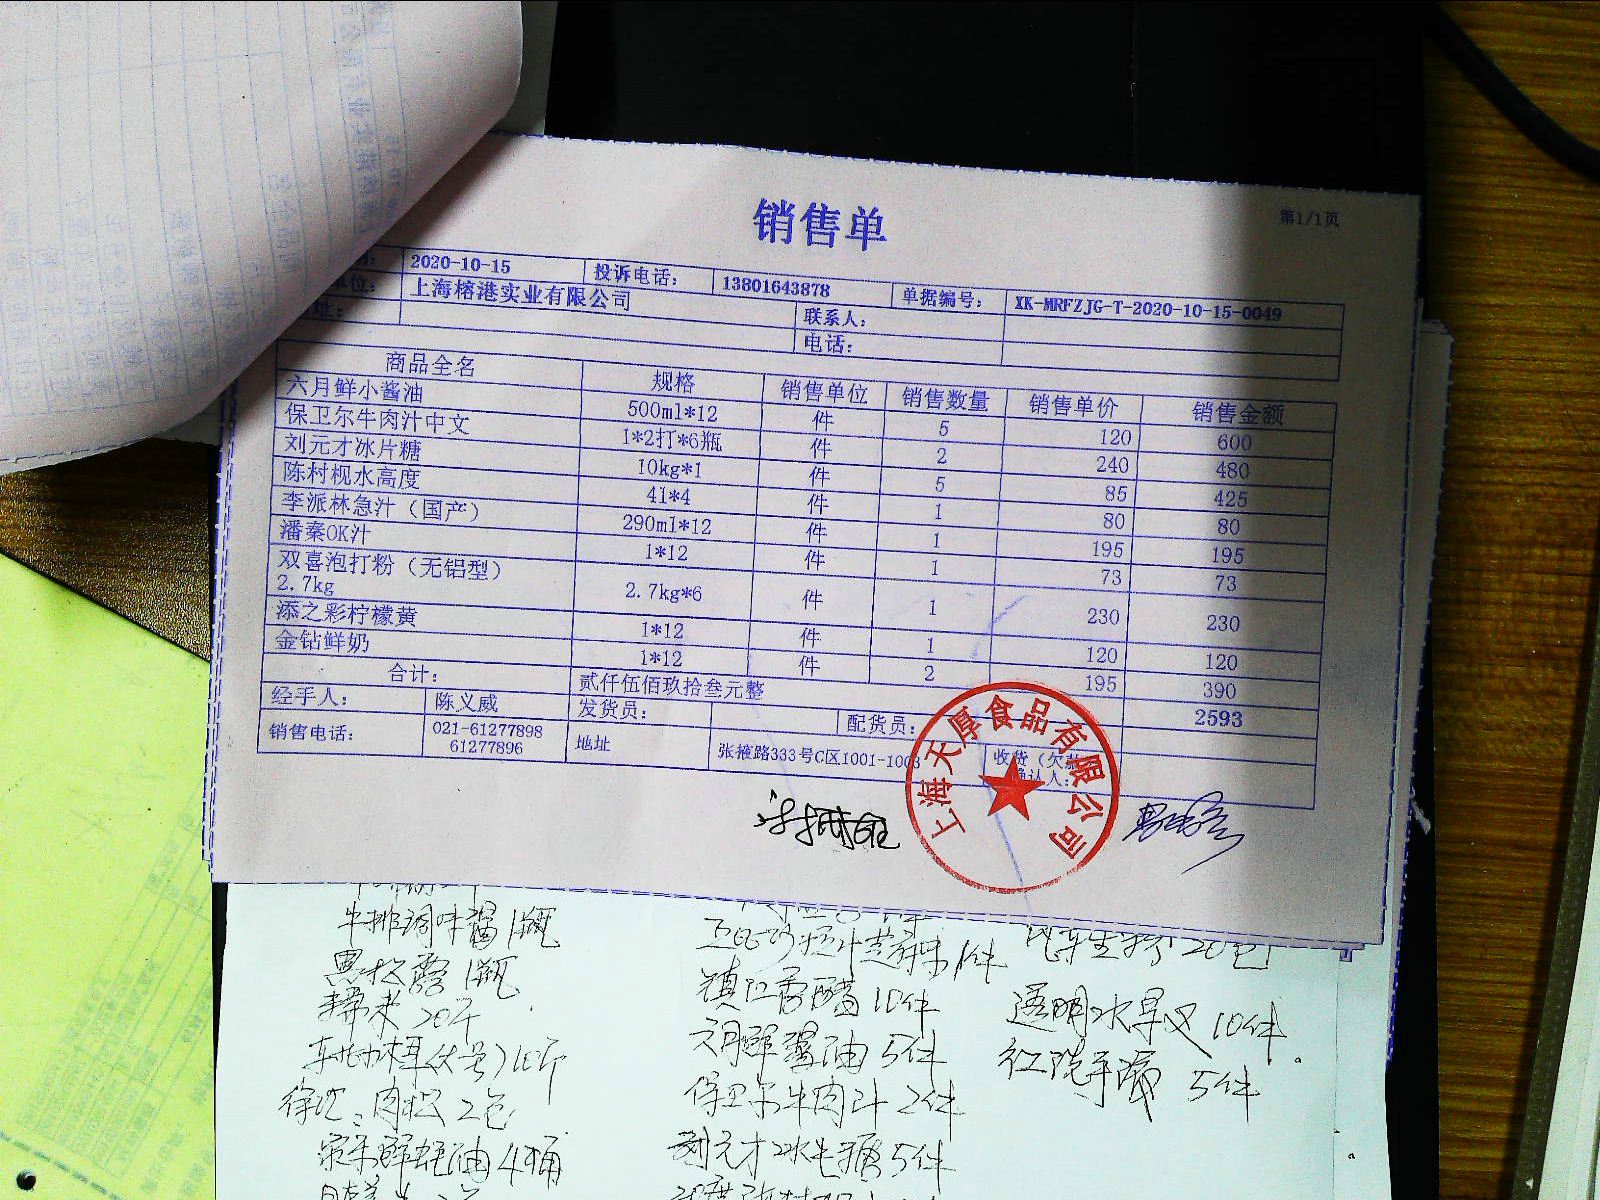 销售单
第1/1页
2020-10-15 投诉电话： 13801643878 单据编号： XK-MRFZJG-T-2020-10-15-0049
单位： 上海榕港实业有限公司 联系人：
址： 电话：
商品全名 规格 销售单位 销售数量 销售单价 销售金额
六月鲜小酱油 500ml*12 件 5 120 600
保卫尔牛肉汁中文 1*2打*6瓶 件 2 240 480
刘元才冰片糖 10kg*1 件 5 85 425
陈村枧水高度 4l*4 件 1 80 80
李派林急汁（国产） 290ml*12 件 1 195 195
潘秦OK汁 1*12 件 1 73 73
双喜泡打粉（无铝型）2.7kg 2.7kg*6 件 1 230 230
添之彩柠檬黄 1*12 件 1 120 120
金钻鲜奶 1*12 件 2 195 390
合计： 贰仟伍佰玖拾叁元整 2593
经手人： 陈义威 发货员： 配货员：
销售电话： 021-61277898 61277896 地址 张掖路333号C区1001-1003 收货（欠款 确认人：
上海天厚食品有限公司
牛排调味酱1瓶
黑松露1瓶
20斤
10斤
肉松2包
蚝油4桶
1件
镇江香醋10件
六月鲜酱油5件
保卫尔牛肉汁2件
刘元才冰片糖5件
花生 20包
透明水 10件
红洗手液 5件